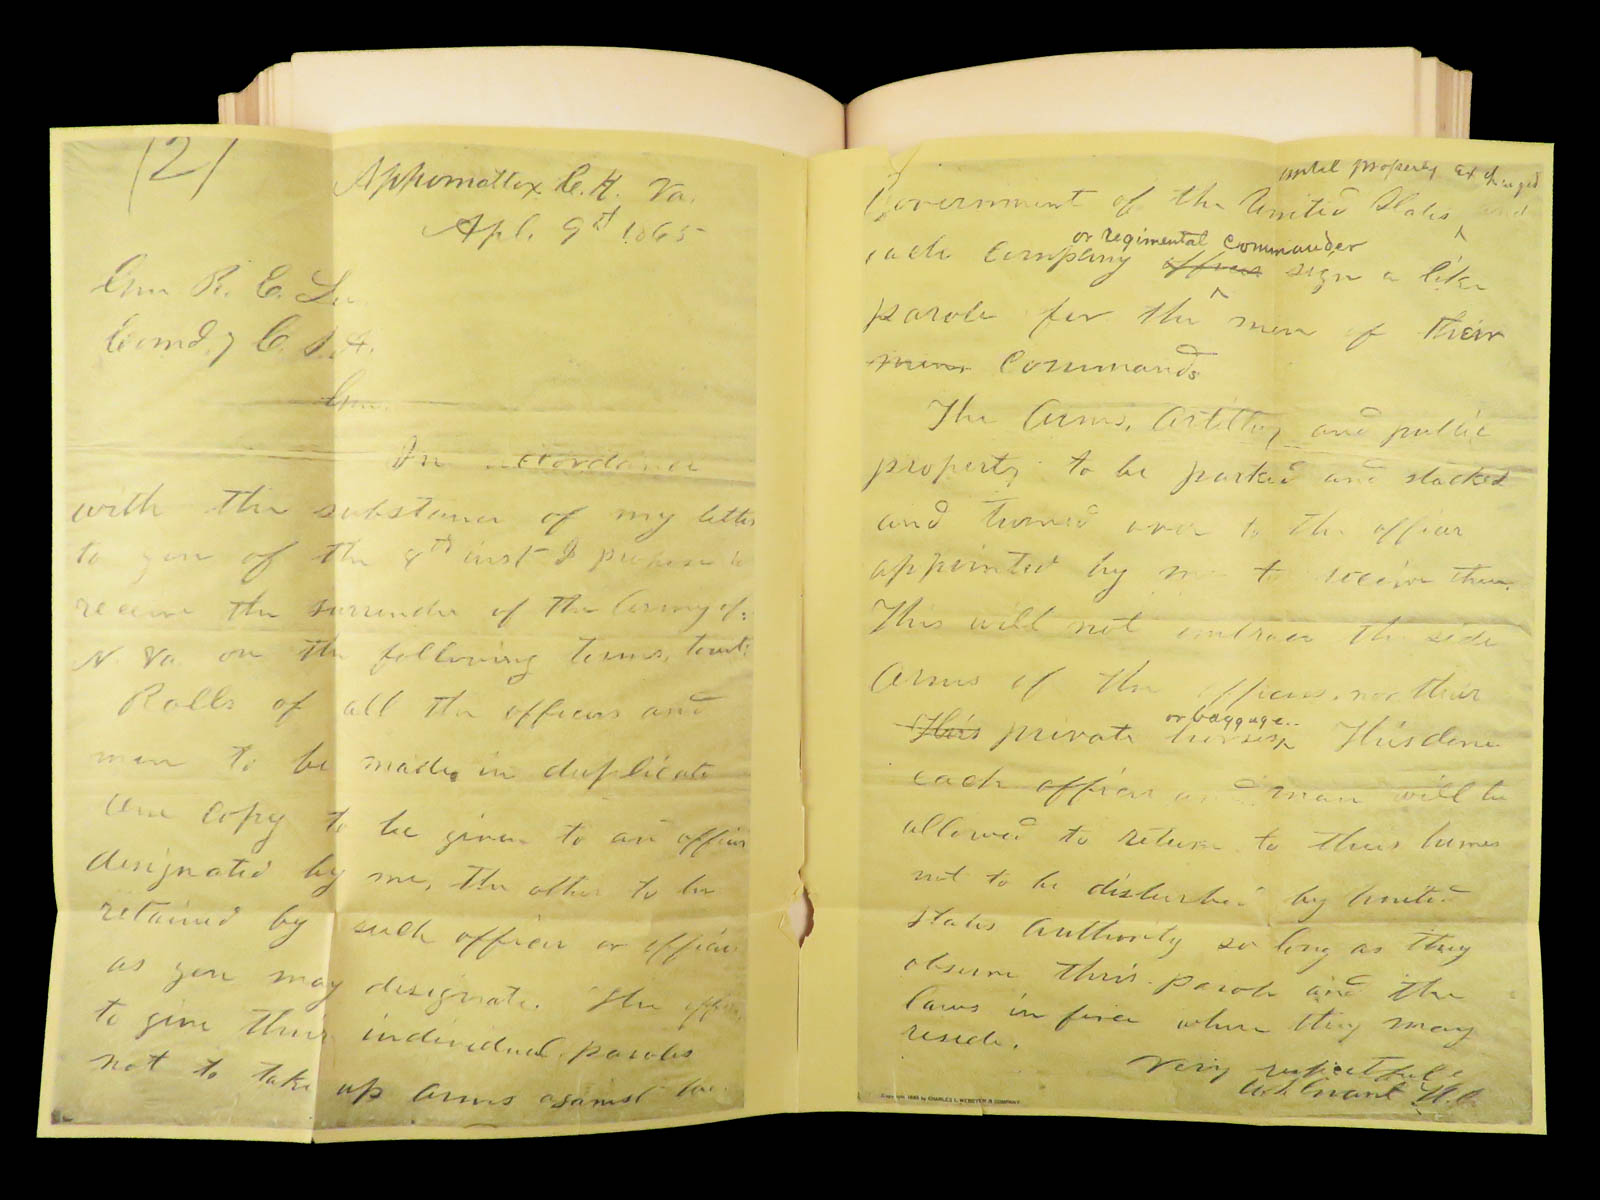 (2)
Appomattox C. H. Va.
Apl. 9th 1865
Gen R. E. Lee
Comd.g C. S. A.
Gen.
In accordance
with the substance of my letter
to you of the 8th inst I propose to
receive the surrender of the Army of
N. Va. on the following terms, towit:
Rolls of all the officers and
men to be made in duplicate
One copy to be given to an officer
designated by me, the other to be
retained by such officer or officers
as you may designate. The officers
to give their individual paroles
not to take up arms against the
Government of the United States and
until properly exchanged
each company officer sign a like
or regimental commander
parole for the men of their
commands
The Arms, Artillery and public
property to be parked and stacked
and turned over to the officer
appointed by me to receive them.
This will not embrace the side
Arms of the officers, nor their
private horses or baggage. This done
each officer and man will be
allowed to return to their homes
not to be disturbed by United
States Authority so long as they
observe their parole and the
laws in force where they may
reside.
Very respectfully
U. S. Grant Lt. Gn
Copyright 1885 by CHARLES L. WEBSTER & COMPANY